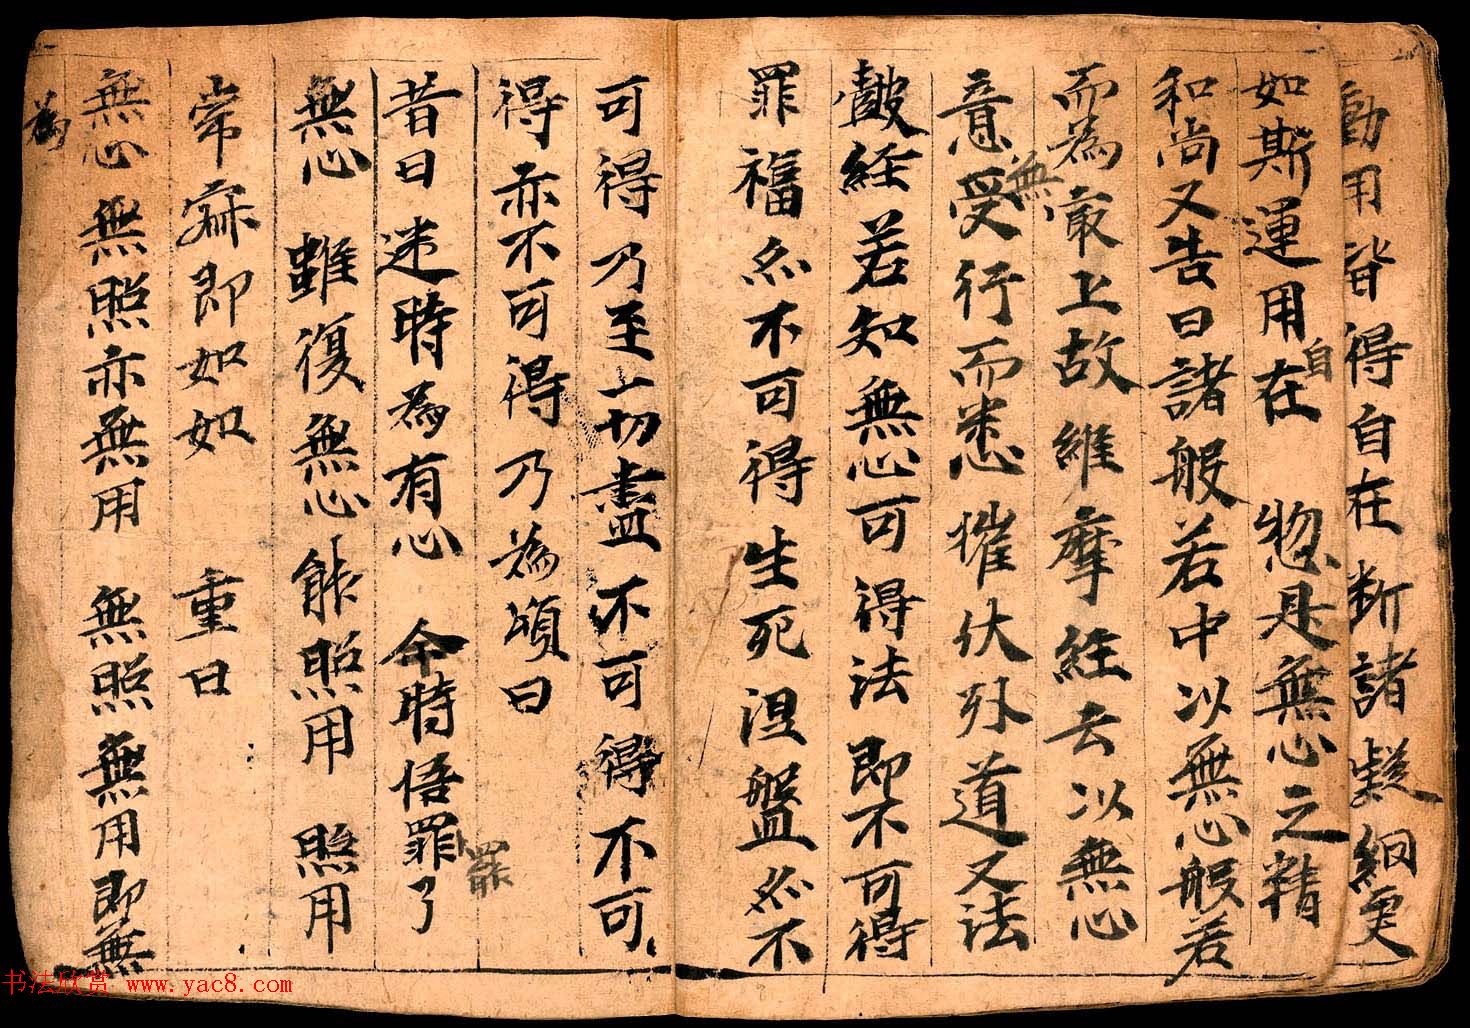 動用皆得自在斷諸疑網更
如斯運用自在 惣是無心之精
和尚又告曰諸般若中以無心般若
而為最上故維摩經云以無心
意無受行而悉摧伏外道又法
皷經若知無心可得法即不可得
罪福亦不可得生死涅盤亦不
可得乃至一切盡不可得不可
得亦不可得乃為頌曰
昔日迷時為有心 今時悟罪了
罷
無心 雖復無心能照用 照用
常寂即如如 重曰
無心無照亦無用 無照無用即無
為
书法欣赏 www.yac8.com